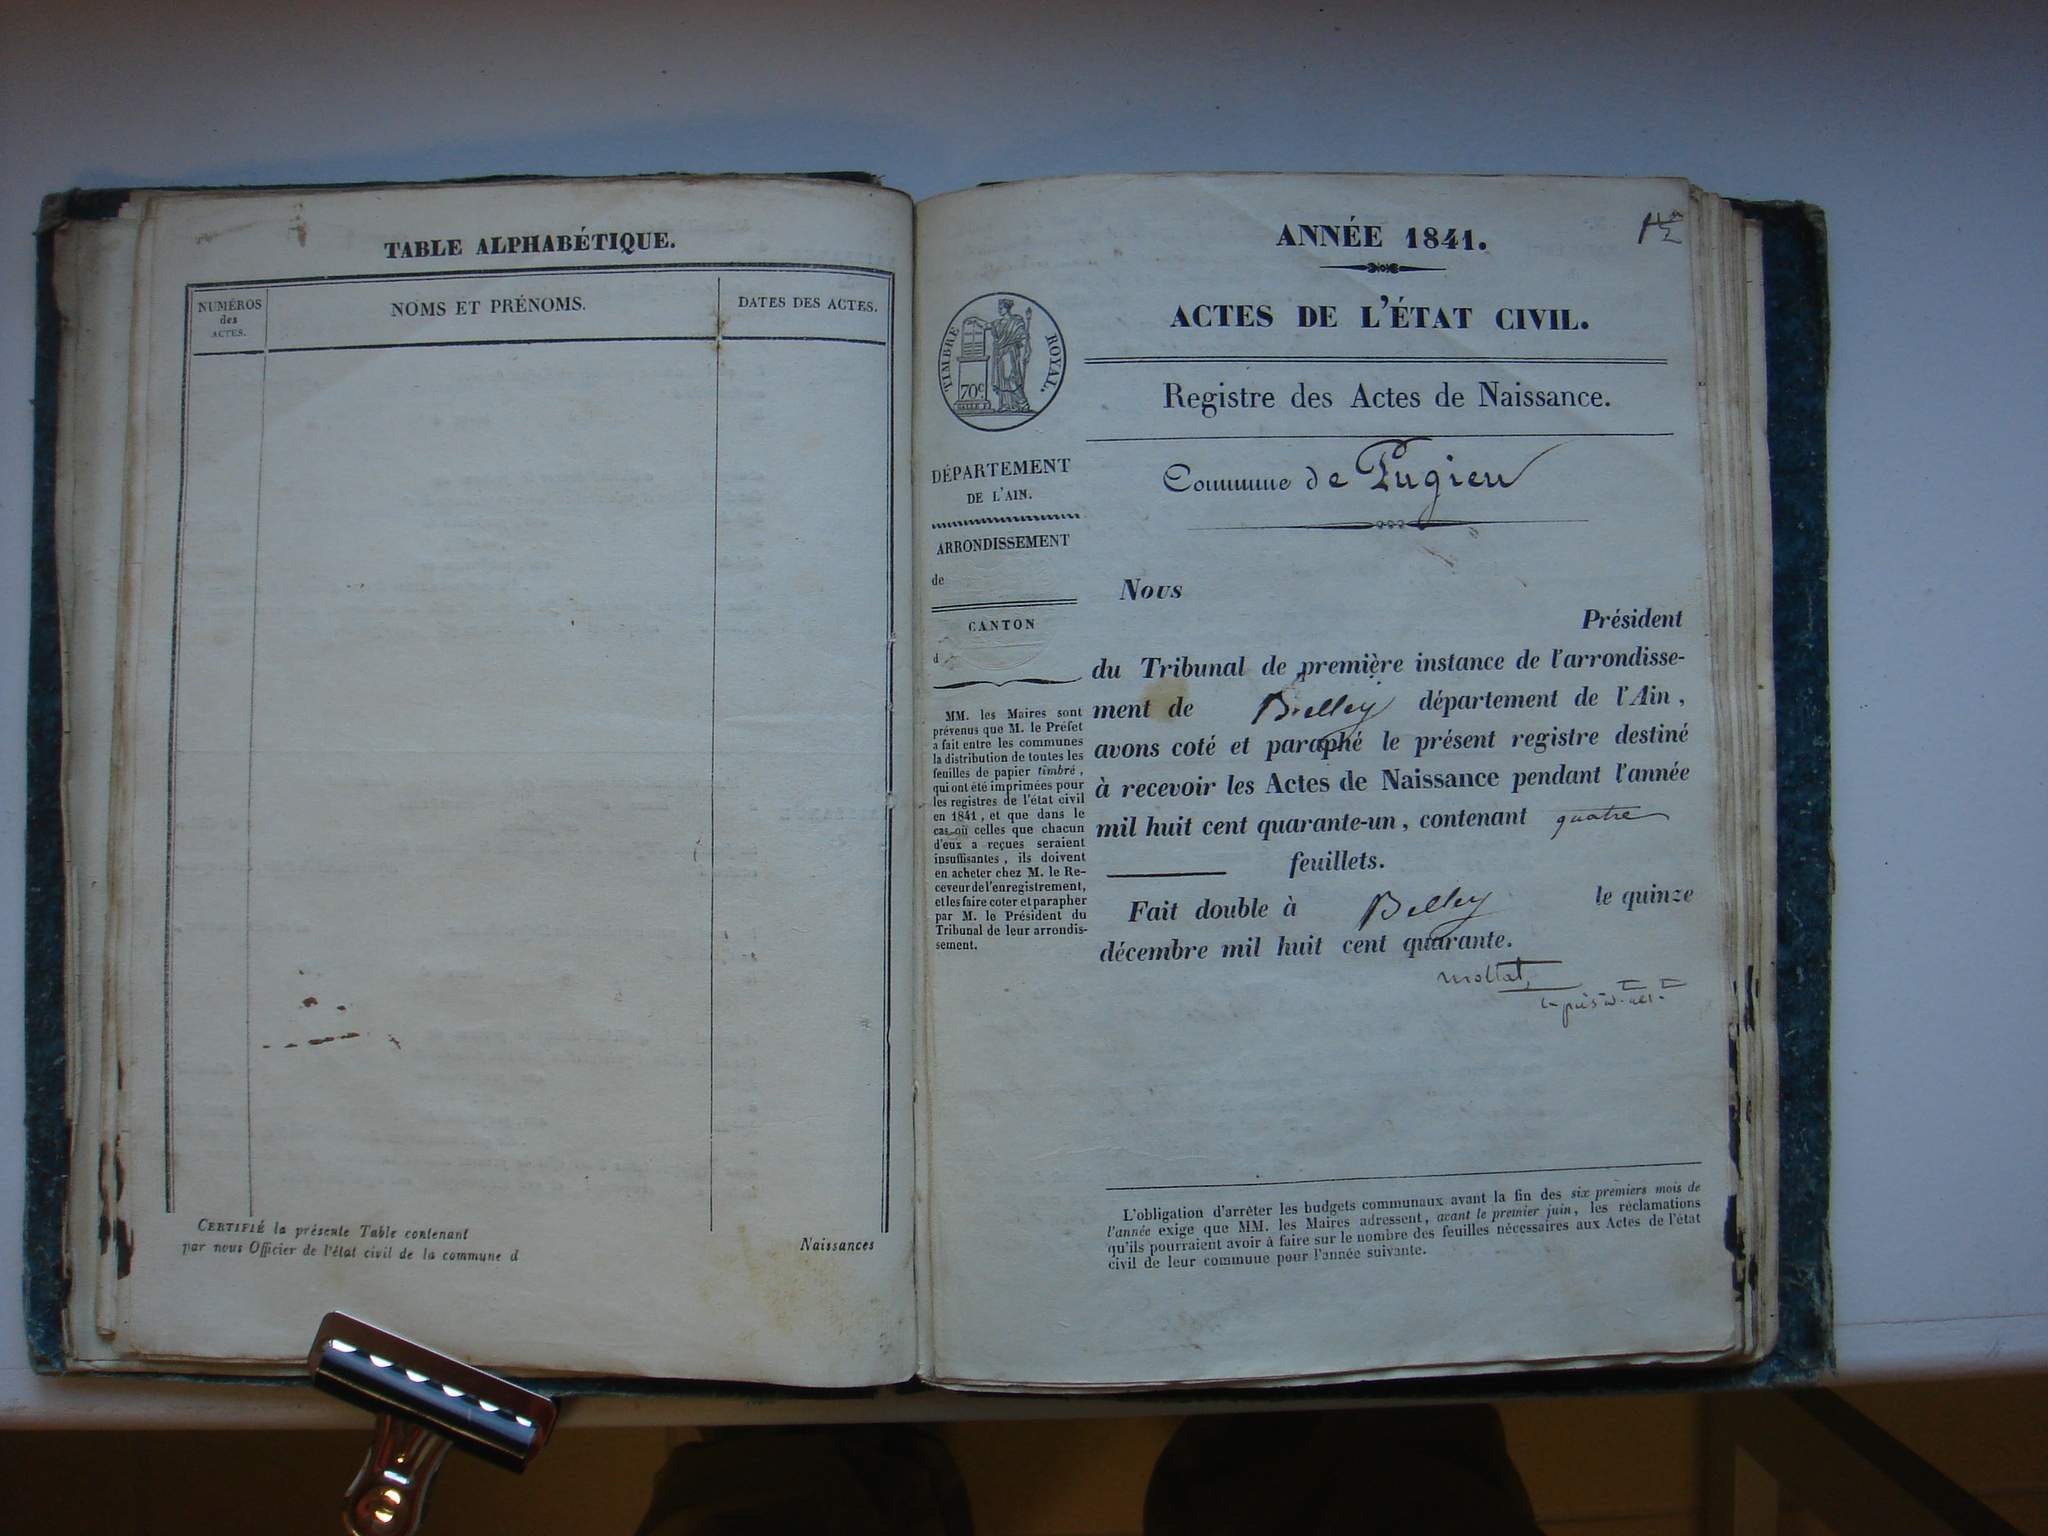 TABLE ALPHABÉTIQUE.
NUMÉROS
des
ACTES.
NOMS ET PRÉNOMS.
DATES DES ACTES.
CERTIFIÉ la présente Table contenant
Naissances
par nous Officier de l'état civil de la commune d
ANNÉE 1841.
ACTES DE L'ÉTAT CIVIL.
Registre des Actes de Naissance.
Commune de Pugieu
TIMBRE ROYAL.
70c.
DÉPARTEMENT
DE L'AIN.
ARRONDISSEMENT
de
CANTON
d
MM. les Maires sont
prévenus que M. le Préfet
a fait entre les communes
la distribution de toutes les
feuilles de papier timbré,
qui ont été imprimées pour
les registres de l'état civil
en 1841, et que dans le
cas où celles que chacun
d'eux a reçues seraient
insuffisantes, ils doivent
en acheter chez M. le Re-
ceveur de l'enregistrement,
et les faire coter et parapher
par M. le Président du
Tribunal de leur arrondis-
sement.
Nous
Président
du Tribunal de première instance de l'arrondisse-
ment de Belley département de l'Ain,
avons coté et paraphé le présent registre destiné
à recevoir les Actes de Naissance pendant l'année
mil huit cent quarante-un, contenant quatre
feuillets.
Fait double à Belley le quinze
décembre mil huit cent quarante.
L'obligation d'arrêter les budgets communaux avant la fin des six premiers mois de
l'année exige que MM. les Maires adressent, avant le premier juin, les réclamations
qu'ils pourraient avoir à faire sur le nombre des feuilles nécessaires aux Actes de l'état
civil de leur commune pour l'année suivante.